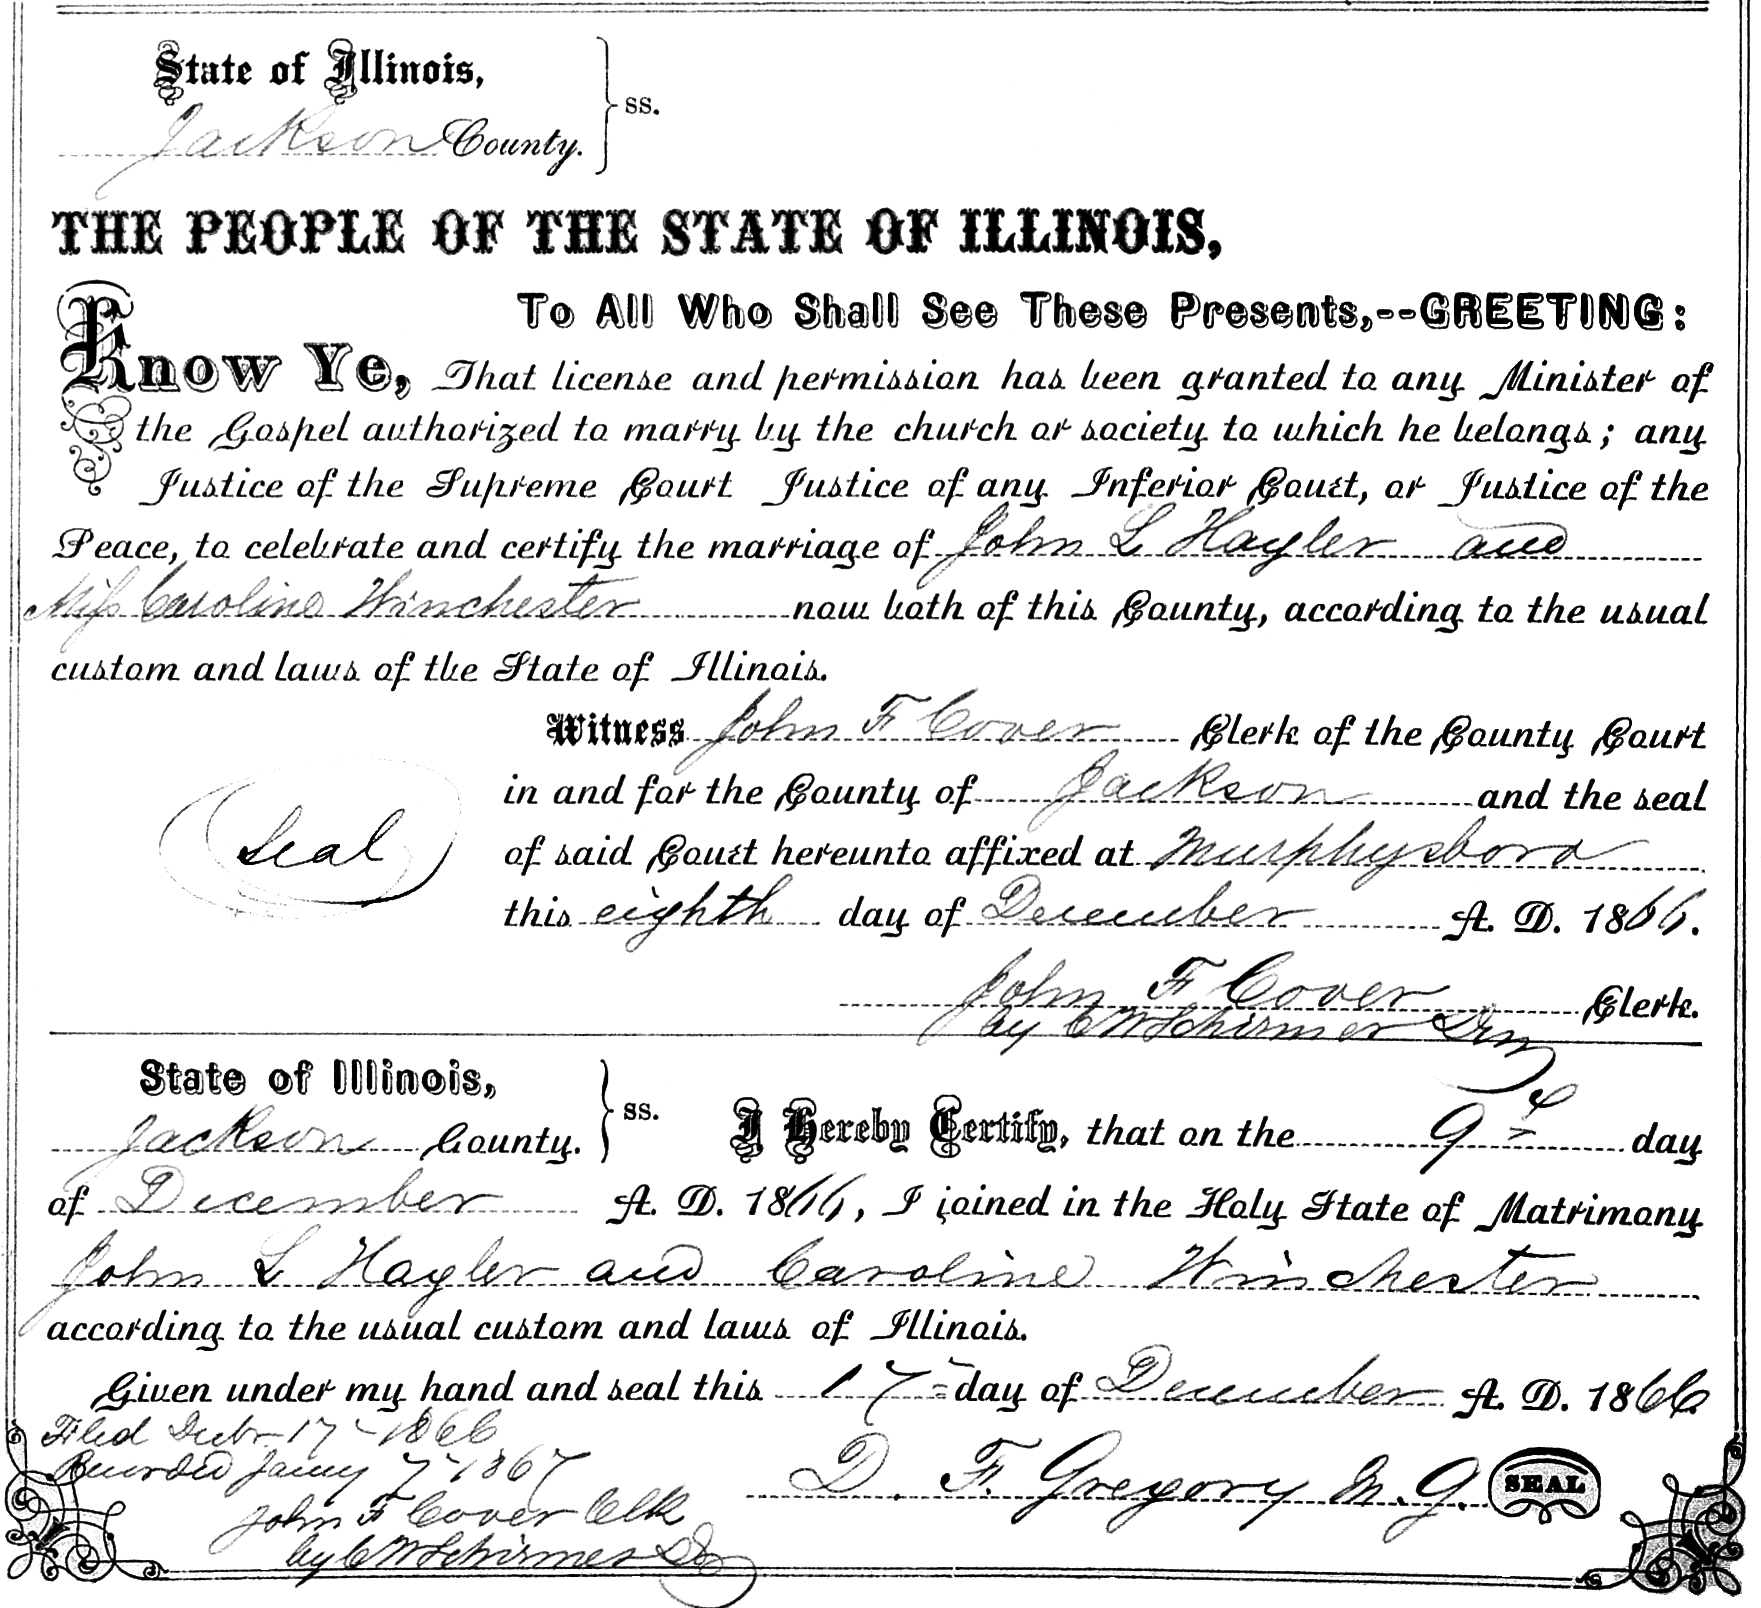 State of Illinois,
Jackson County. } ss.
THE PEOPLE OF THE STATE OF ILLINOIS,
To All Who Shall See These Presents,--GREETING:
Know Ye, That license and permission has been granted to any Minister of
the Gospel authorized to marry by the church or society to which he belongs; any
Justice of the Supreme Court Justice of any Inferior Court, or Justice of the
Peace, to celebrate and certify the marriage of John L Hagler and
Miss Caroline Winchester now both of this County, according to the usual
custom and laws of the State of Illinois.
Witness John F Cover Clerk of the County Court
in and for the County of Jackson and the seal
Seal
of said Court hereunto affixed at Murphysboro
this eighth day of December A. D. 1866.
John F Cover Clerk.
by C W Schirmer
State of Illinois,
Jackson County. } ss. I Hereby Certify, that on the 9th day
of December A. D. 1866, I joined in the Holy State of Matrimony
John L Hagler and Caroline Winchester
according to the usual custom and laws of Illinois.
Given under my hand and seal this 17 day of December A. D. 1866
Filed Decbr 17 - 1866
Recorded Jany 7 - 1867
D. F. Gregory M. G. SEAL
John F Cover Clk
by C W Schirmer